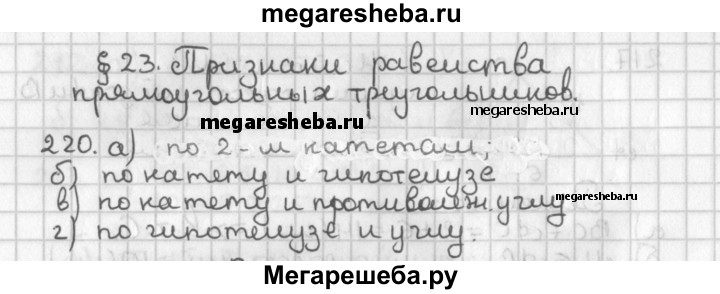 megaresheba.ru
§ 23. Признаки равенства
прямоугольных треугольников.
megaresheba.ru
megaresheba.ru
220. а) по 2-м катетам;
б) по катету и гипотенузе
в) по катету и противолеж. углу
megaresheba.ru
г) по гипотенузе и углу.
Мегарешеба.ру